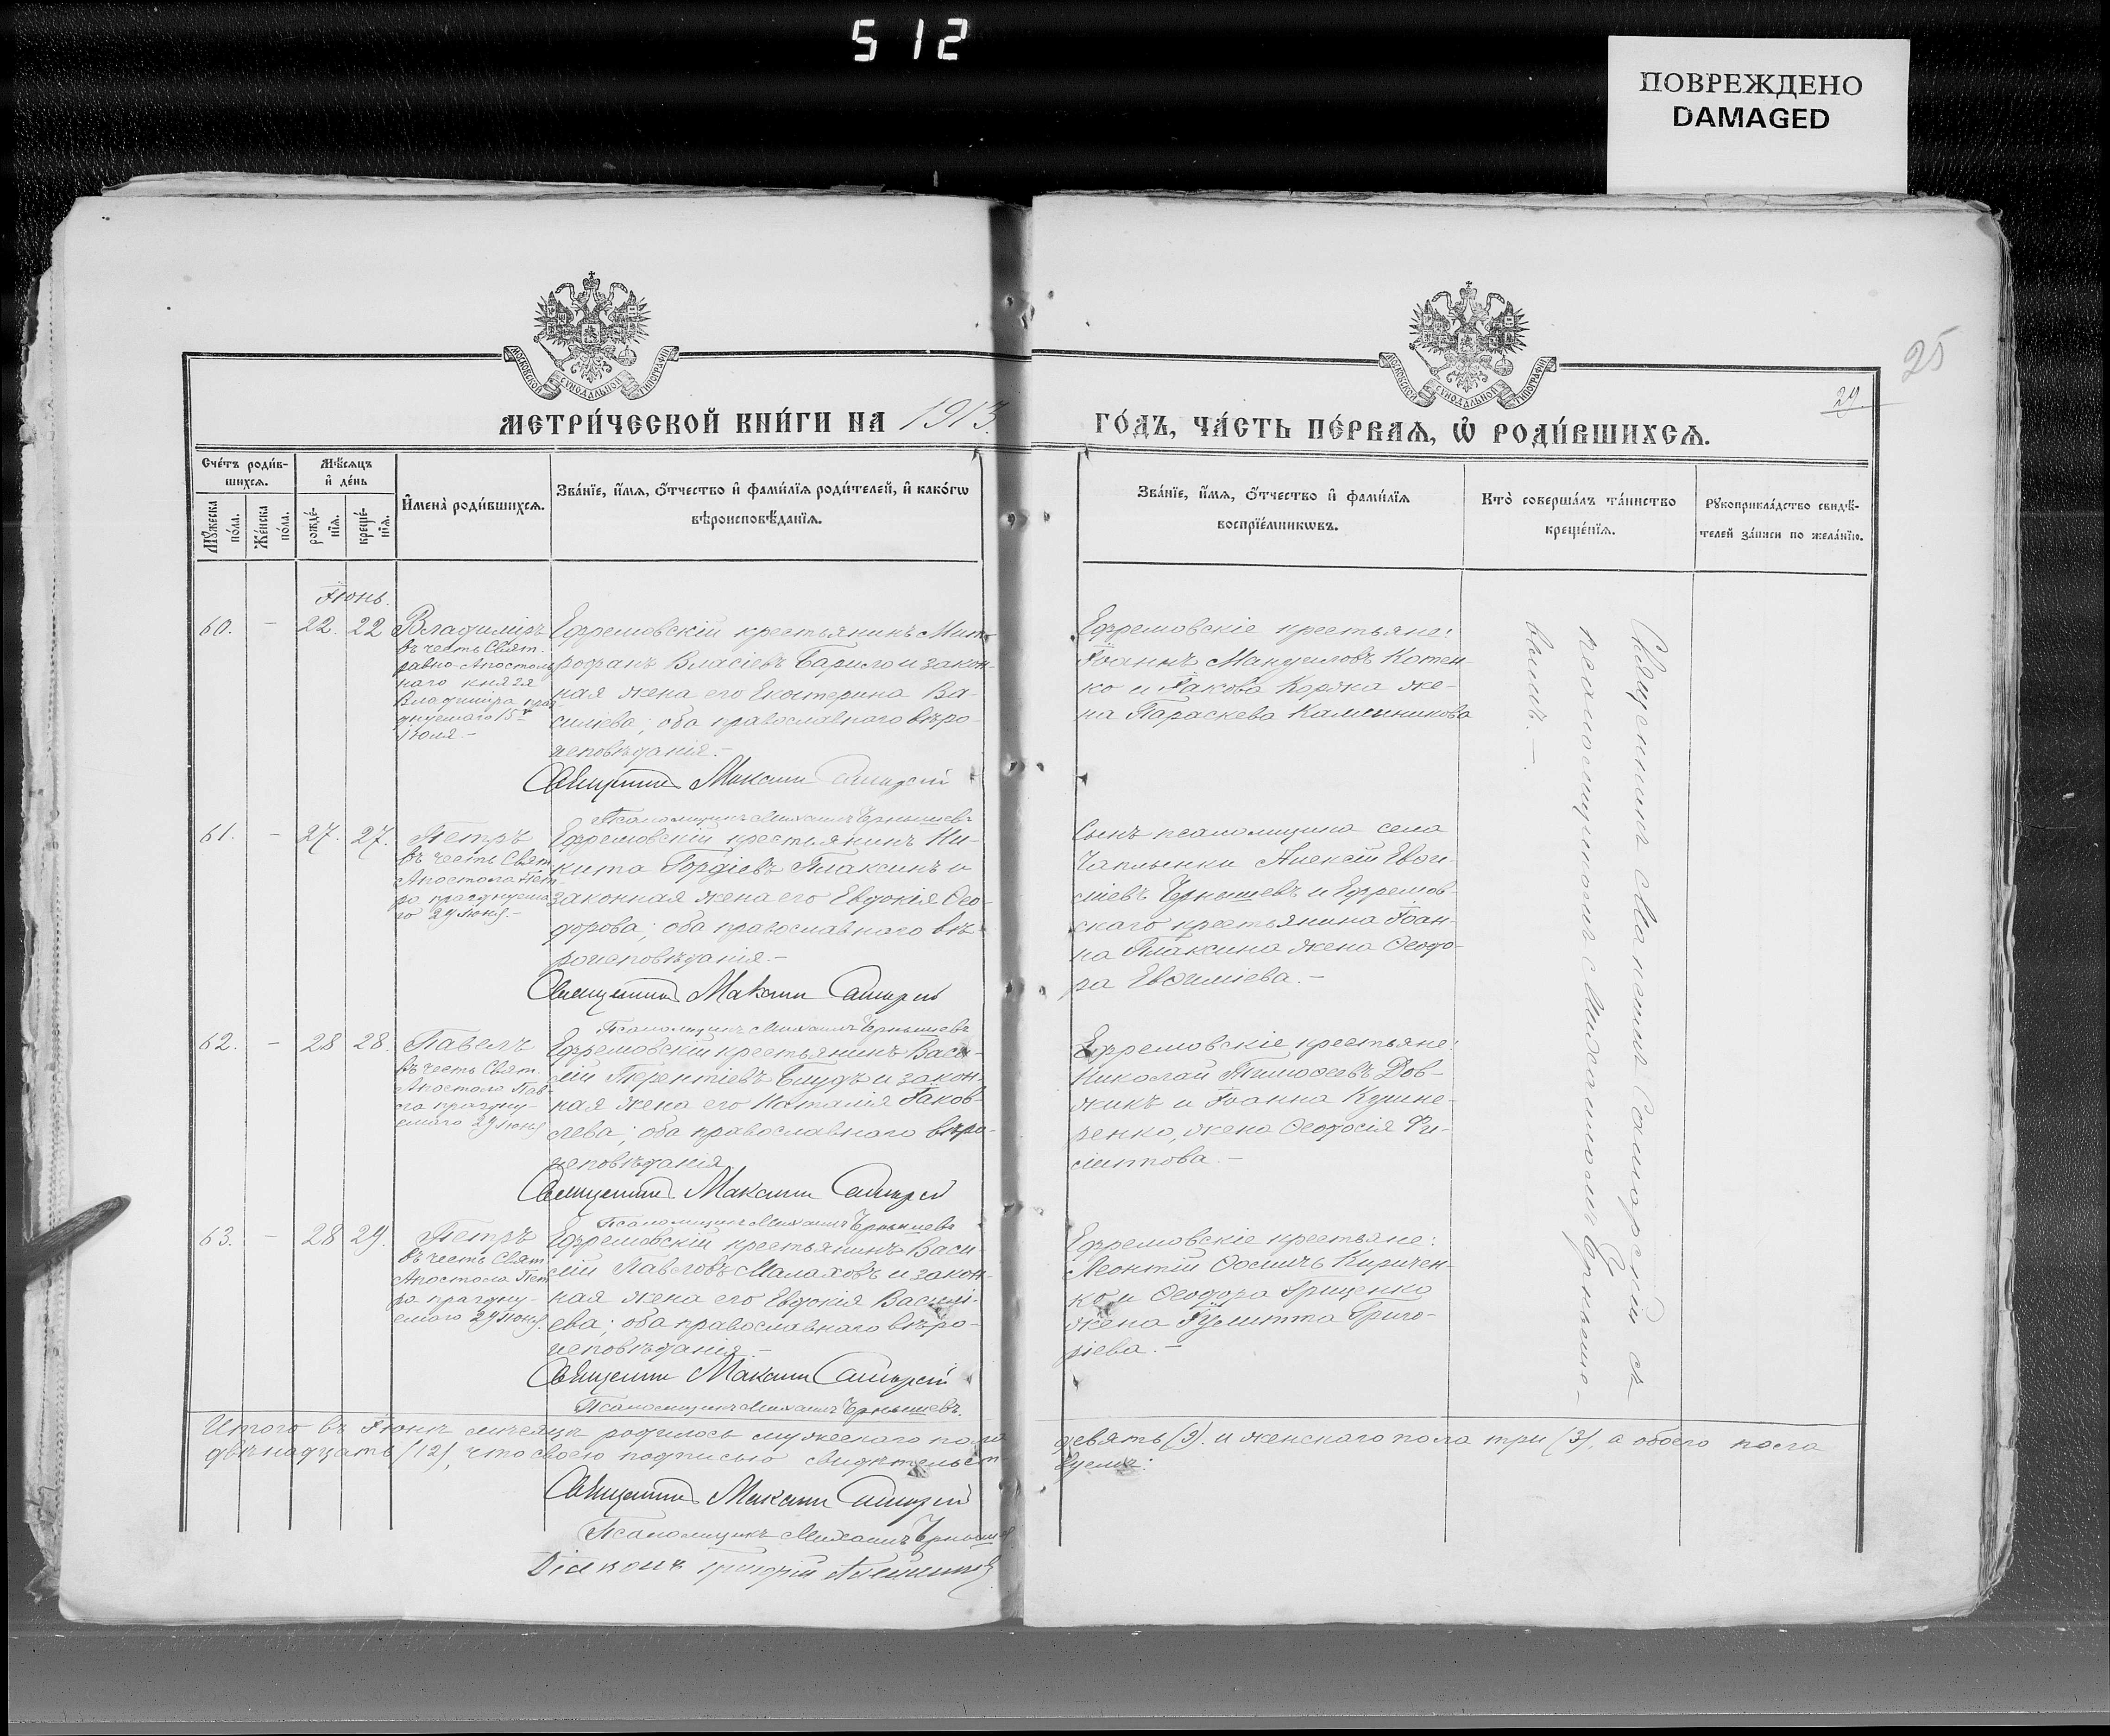 512
ПОВРЕЖДЕНО
DAMAGED
25
29.
МОСКОВСКОЙ СѴНОДАЛЬНОЙ ТИПОГРАФІИ
МОСКОВСКОЙ СѴНОДАЛЬНОЙ ТИПОГРАФІИ
МЕТРИ́ЧЕСКОЙ КНИ́ГИ НА 1913.
ГО́ДЪ, ЧА́СТЬ ПЕ́РВАѦ, Ѡ҆ РОДИ́ВШИХСѦ.
Сче́тъ роди́в-
шихсѧ.
Мѣ́сѧцъ
и҆ де́нь
Мꙋ́жеска
по́ла.
Же́нска
по́ла.
рожде́-
нїѧ.
креще́-
нїѧ.
И҆мена̀ роди́вшихсѧ.
Зва́нїе, и҆́мѧ, ѻ҆́тчество и҆ фами́лїѧ роди́телей, и҆ како́гѡ
вѣроисповѣ́данїѧ.
Зва́нїе, и҆́мѧ, ѻ҆́тчество и҆ фами́лїѧ
воспрїе́мникѡвъ.
Кто̀ соверша́лъ та́инство
креще́нїѧ.
Рꙋкоприкла́дство свидѣ́-
телей за́писи по жела́нїю.
Іюнь.
60. - 22. 22
Владиміръ
въ честь Свят.
равно-Апостоль
наго князя
Владиміра праз
днуемаго 15го
Іюля.-
Ефремовскій крестьянинъ Мит-
рофанъ Власіевъ Барило и закон-
ная жена его Екатерина Ва-
силіева; оба православнаго вѣро-
исповѣданія.-
Священникъ Максим Самарскій
Псаломщикъ Михаилъ Чернышевъ
Ефремовскіе крестьяне:
Іоаннъ Мануиловъ Котен-
ко и Іакова Коржа же-
на Параскева Калинникова
61. - 27. 27.
Петръ
въ честь Свят.
Апостола Пет-
ра празднуема
го 29 Іюня.-
Ефремовскій крестьянинъ Ни-
кита Гордіевъ Плаксинъ и
законная жена его Евдокія Ѳео-
дорова; оба православнаго вѣ-
роисповѣданія.-
Священникъ Максим Самарскій
Псаломщикъ Михаилъ Чернышевъ
Сынъ псаломщика села
Чаплынки Алексій Евѳи-
міевъ Чернышевъ и Ефремов-
скаго крестьянина Іоан-
на Плаксина жена Ѳеодо-
ра Евѳиміева.-
62. - 28 28.
Павелъ
въ честь Свят.
Апостола Пав-
ла праздну-
емаго 29 Іюня
Ефремовскій крестьянинъ Васи-
лій Терентіевъ Блудъ и закон-
ная жена его Наталія Іаков-
лева; оба православнаго вѣро-
исповѣданія
Священникъ Максим Самарскій
Псаломщикъ Михаилъ Чернышевъ
Ефремовскіе крестьяне:
Николай Тимоѳеевъ Дов-
жикъ и Іоанна Кушне-
ренко, жена Ѳеодосія Фи-
липпова.-
63. - 28 29.
Петръ
въ честь Свят.
Апостола Пет
ра праздну-
емаго 29 Іюня.
Ефремовскій крестьянинъ Васи-
лій Павловъ Малаховъ и закон-
ная жена его Евдокія Василі-
ева; оба православнаго вѣро-
исповѣданія.-
Священникъ Максим Самарскій
Псаломщикъ Михаилъ Чернышевъ.
Ефремовскіе крестьяне:
Леонтій Ѳомичъ Киричен-
ко и Ѳеодора Грищенко
жена Іулитта Григо-
ріева.-
Священникъ Максимъ Самарскій съ
псаломщикомъ Михаиломъ Черныше-
вымъ.-
Итого въ Іюнѣ мѣсяцѣ родилось мужескаго пола девять (9). и женскаго пола три (3), а обоего пола
двѣнадцать (12), что своею подписью свидѣтельст
вуемъ:
Священникъ Максим Самарскій
Псаломщикъ Михаилъ Чернышев
Діаконъ Григорій